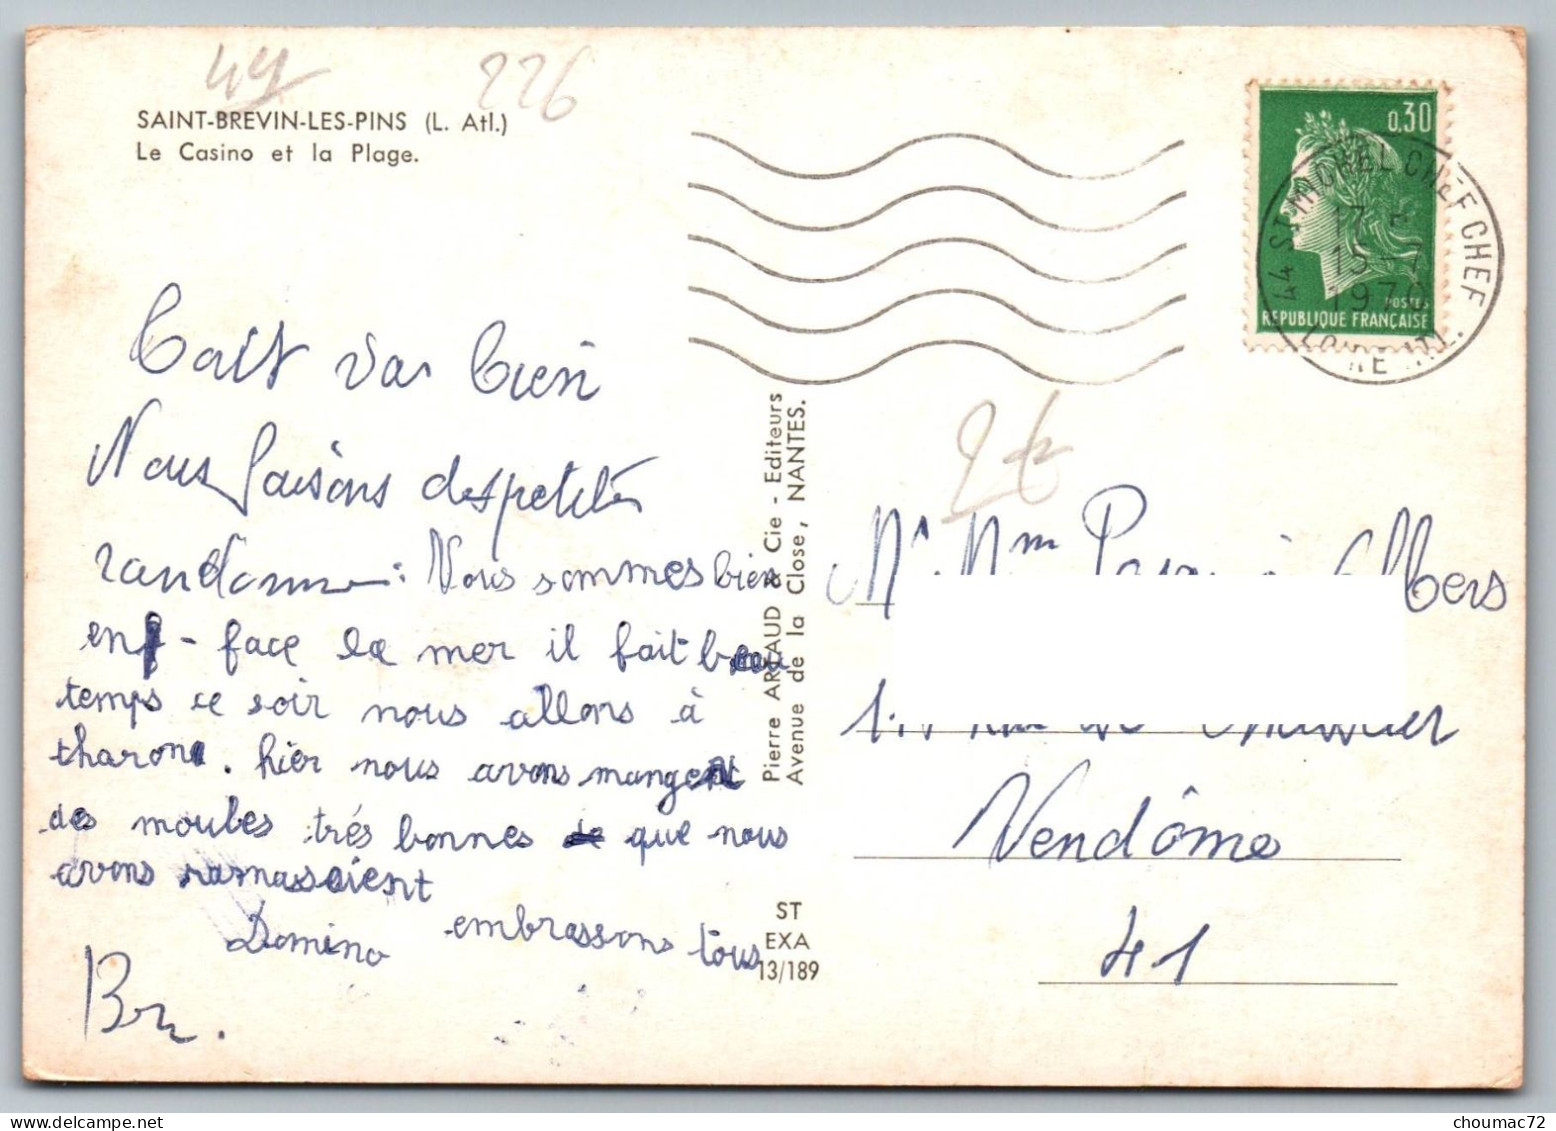 49
226
SAINT-BREVIN-LES-PINS (L. Atl.)
Le Casino et la Plage.
Tout va bien
Nous faisons des petites
randonnées: Nous sommes bien
en - face la mer il fait beau
temps ce soir nous allons à
tharon. hier nous avons manger
des moules très bonnes que nous
avons ramassaient
Domino embrassons tous
Br.
Pierre ARTAUD & Cie - Editeurs
Avenue de la Close, NANTES.
ST
EXA
13/189
0,30
POSTES
REPUBLIQUE FRANÇAISE
44 ST MICHEL CHEF CHEF
17 H
15-7
1970
LOIRE ATL.
Mr Mme Albers
Rue de
Vendôme
41
choumac72